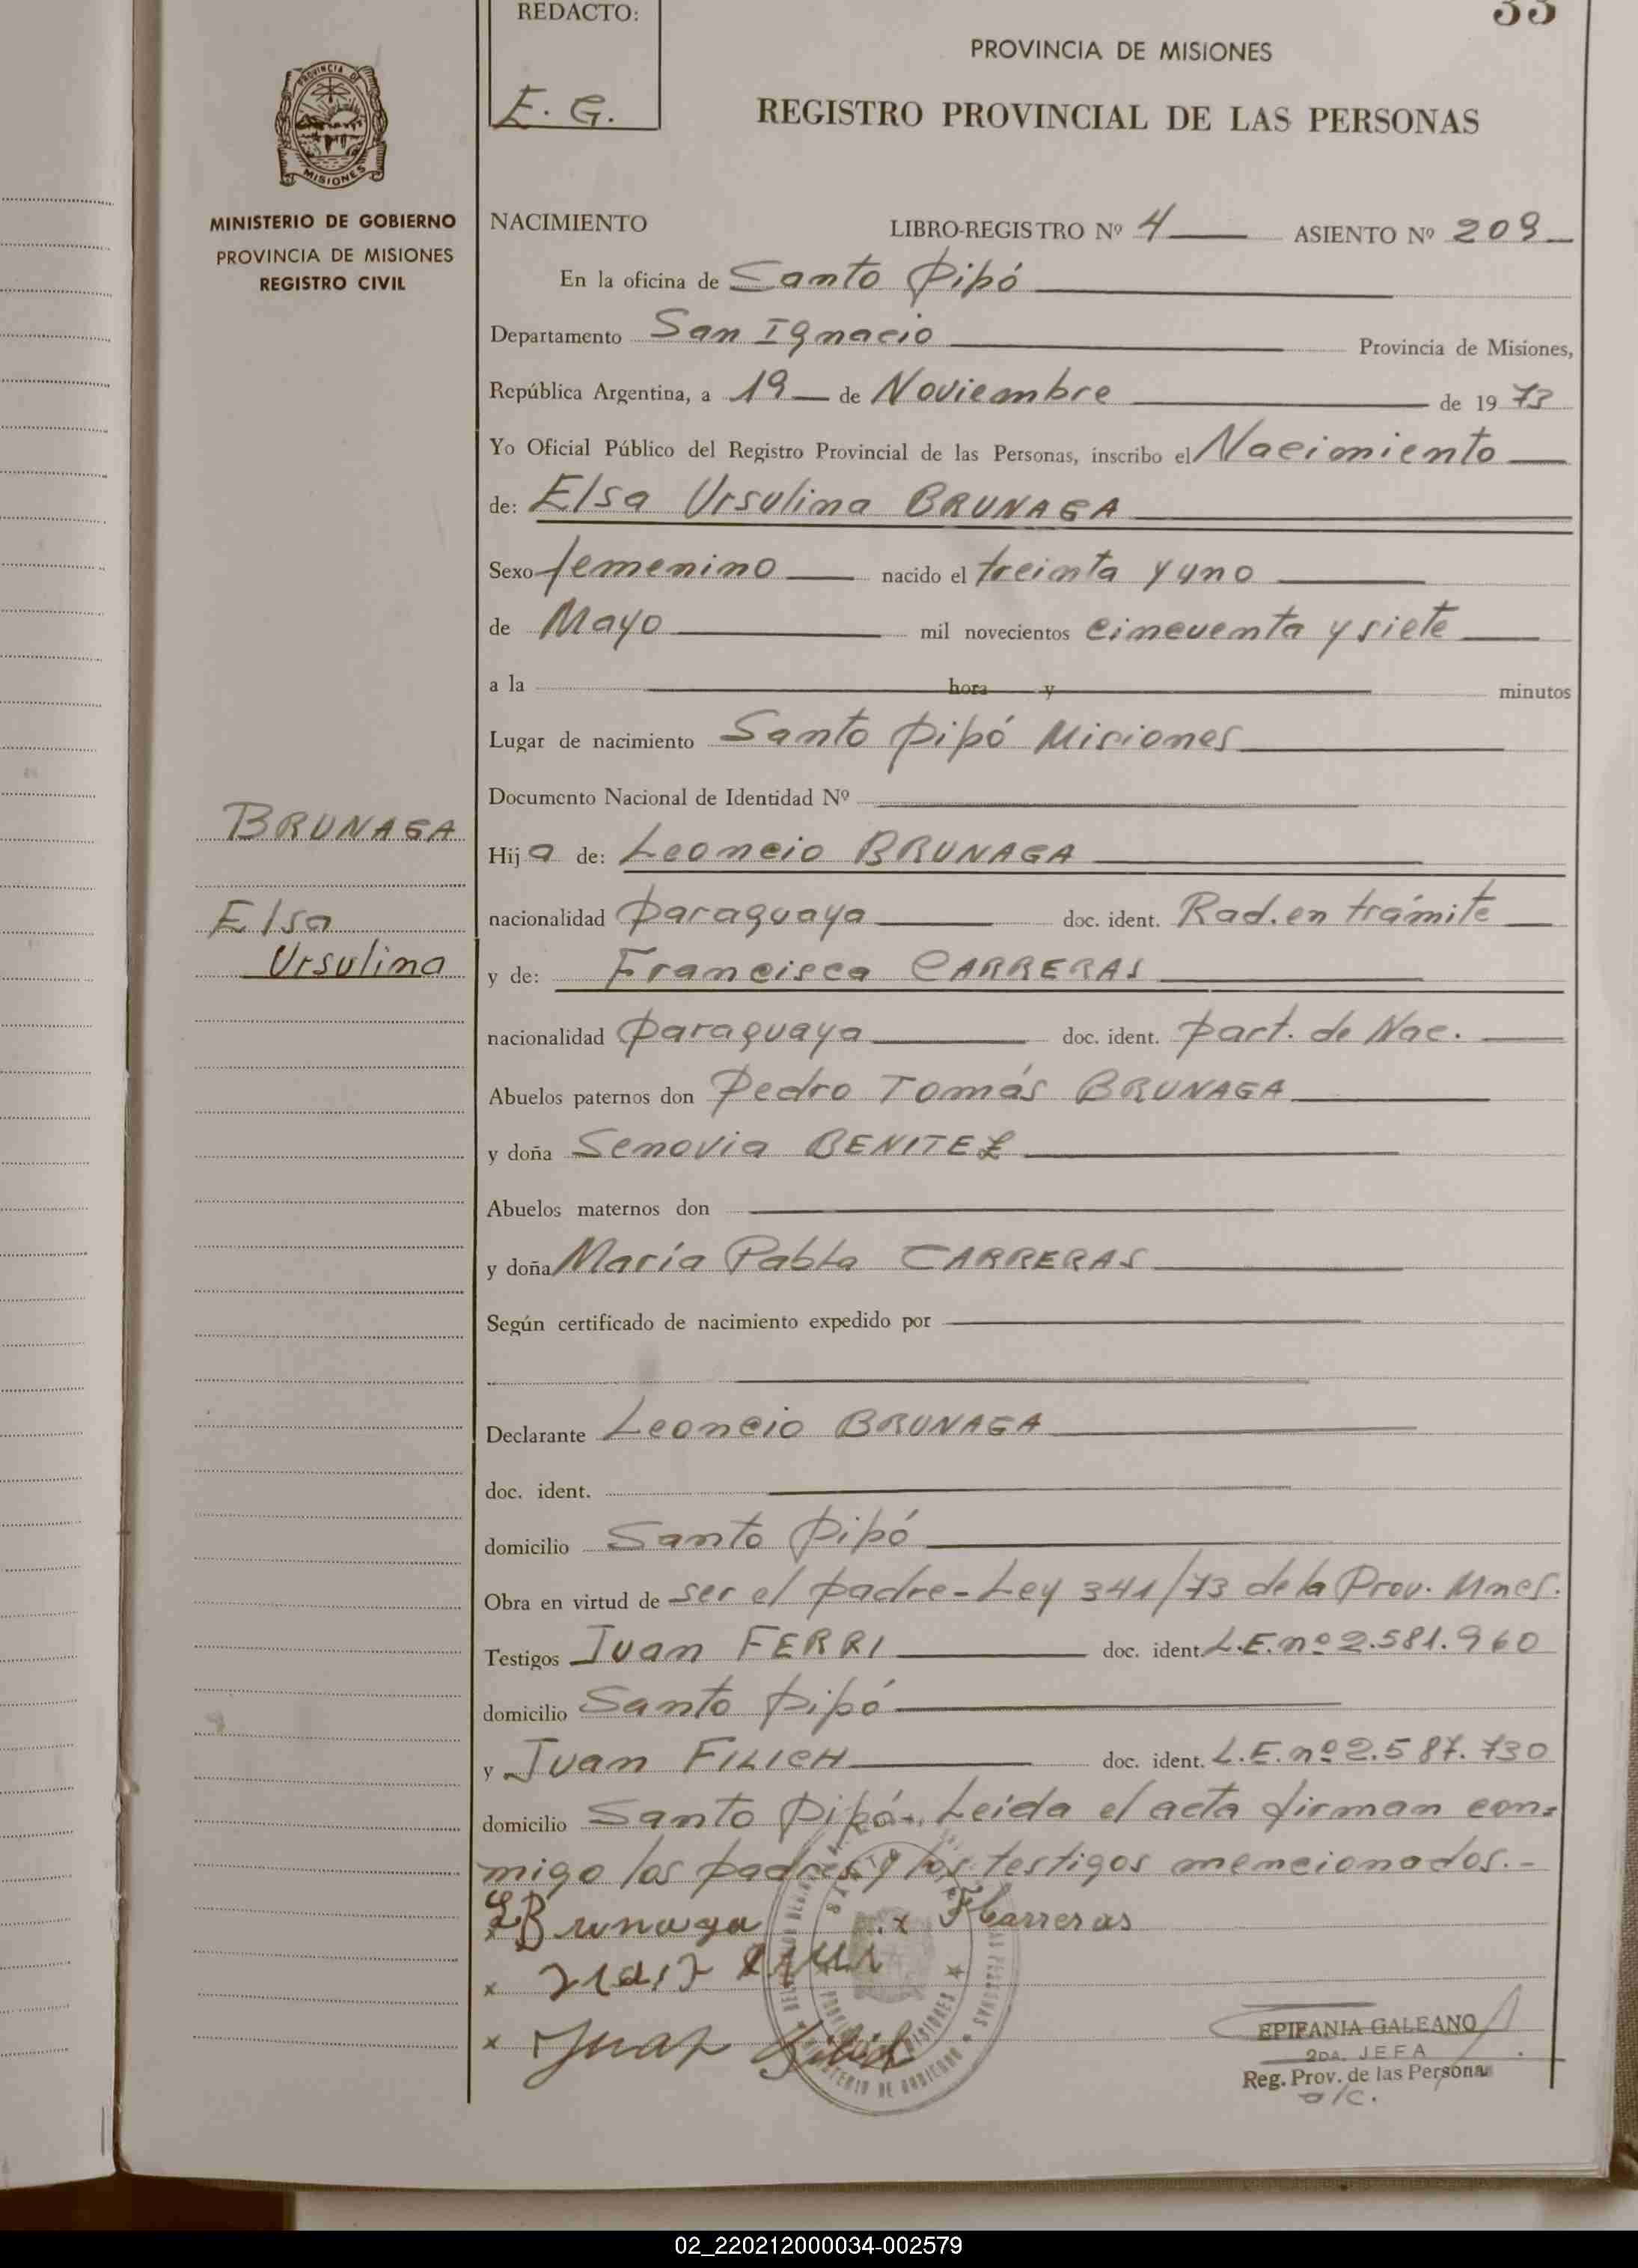 REDACTO:
E. G.
33
PROVINCIA DE MISIONES
REGISTRO PROVINCIAL DE LAS PERSONAS
PROVINCIA DE
MISIONES
MINISTERIO DE GOBIERNO
PROVINCIA DE MISIONES
REGISTRO CIVIL
NACIMIENTO LIBRO-REGISTRO Nº 4 ASIENTO Nº 209
En la oficina de Santo Pipó
Departamento San Ignacio Provincia de Misiones,
República Argentina, a 19 de Noviembre de 19 73
Yo Oficial Público del Registro Provincial de las Personas, inscribo el Nacimiento
de: Elsa Ursulina BRUNAGA
Sexo femenino nacido el treinta y uno
de Mayo mil novecientos cincuenta y siete
a la hora y minutos
Lugar de nacimiento Santo Pipó Misiones
Documento Nacional de Identidad Nº
BRUNAGA
Elsa
Ursulina
Hij a de: Leoncio BRUNAGA
nacionalidad paraguaya doc. ident. Rad. en trámite
y de: Francisca CARRERAS
nacionalidad paraguaya doc. ident. part. de Nac.
Abuelos paternos don Pedro Tomás BRUNAGA
y doña Senovia BENITEZ
Abuelos maternos don
y doña María Pabla CARRERAS
Según certificado de nacimiento expedido por
Declarante Leoncio BRUNAGA
doc. ident.
domicilio Santo Pipó
Obra en virtud de ser el padre - Ley 341/73 de la Prov. Mnes.
Testigos Juan FERRI doc. ident. L.E. nº 2.581.960
domicilio Santo Pipó
y Juan FILICH doc. ident. L.E. nº 2.587.730
domicilio Santo Pipó.- Leida el acta firman con=
migo los padres y los testigos mencionados.-
LBrunaga x FCarreras
x
x Juan Filich
EPIFANIA GALEANO
2DA. JEFA
Reg. Prov. de las Persona
a/c.
02_220212000034-002579